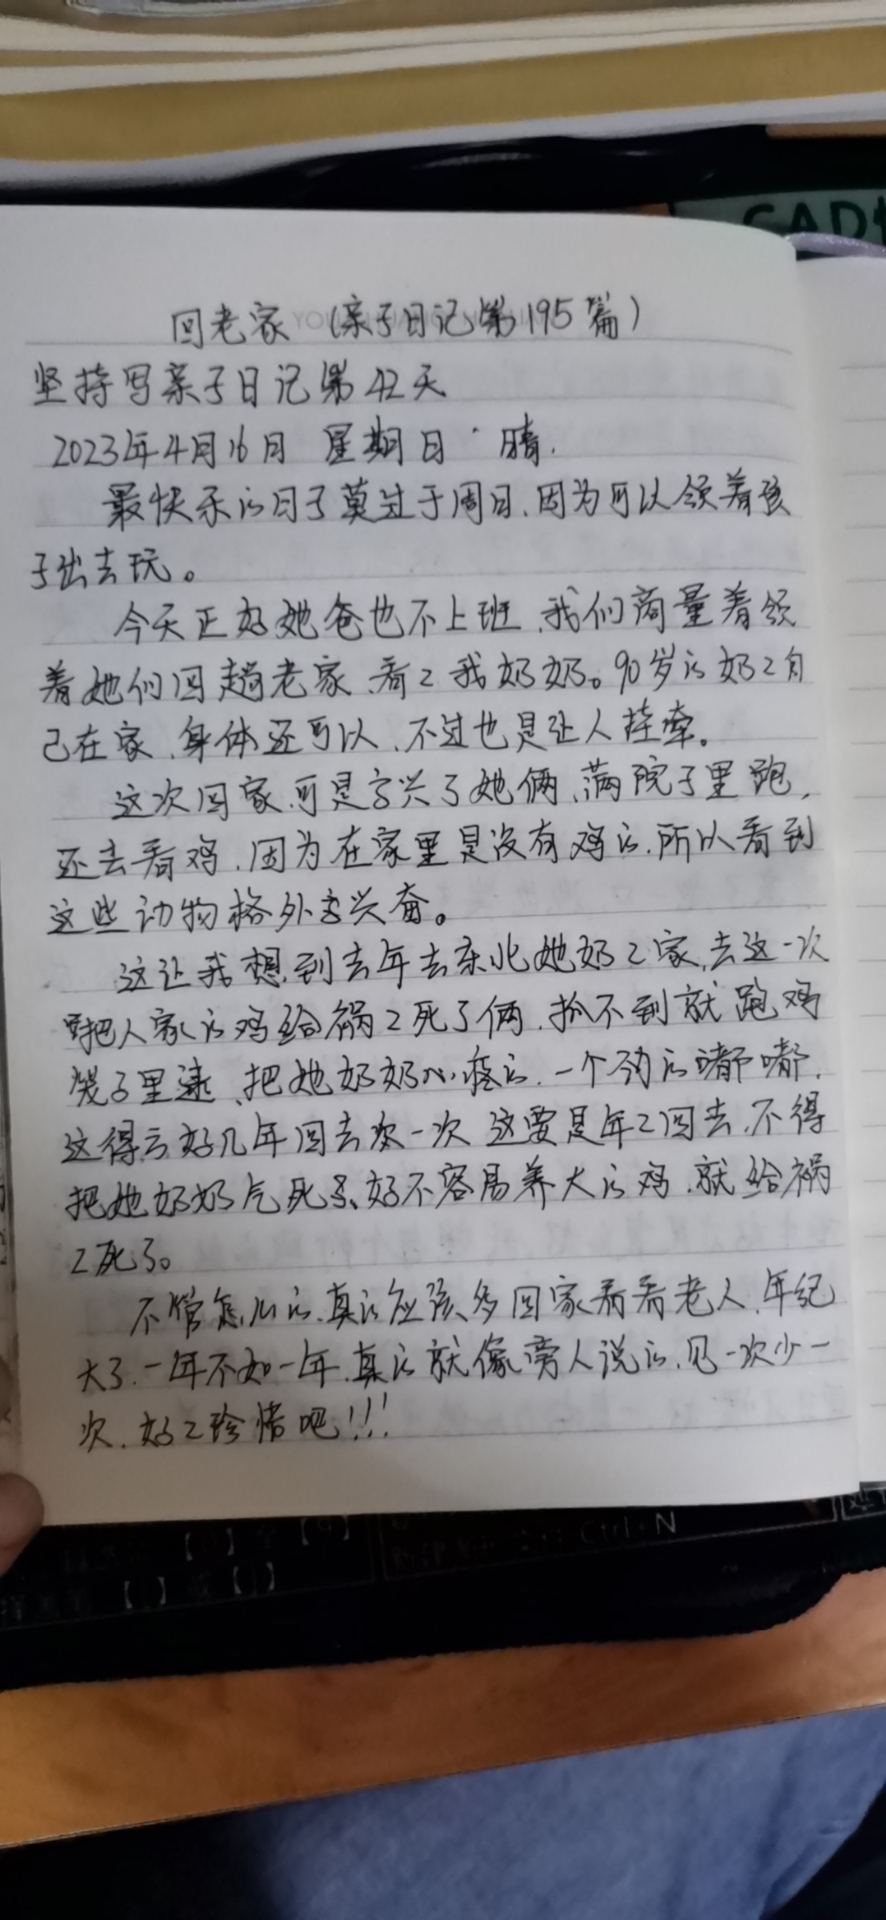 CAD
回老家 (亲子日记第195篇)
坚持写亲子日记第42天
2023年4月16日 星期日 晴.
最快乐的日子莫过于周日,因为可以领着孩
子出去玩。
今天正好她爸也不上班,我们商量着领
着她们回趟老家,看2我奶奶。90岁的奶2自
己在家,身体还可以,不过也是让人挂牵。
这次回家,可是高兴了她俩,满院子里跑,
还去看鸡,因为在家里是没有鸡的,所以看到
这些动物格外高兴奋。
这让我想到去年去东北她奶2家,去这一次
把人家的鸡给祸2死了俩,抓不到就跑鸡
笼子里逮,把她奶奶心疼的,一个劲的嘟嘟,
这得亏好几年回去次一次 这要是年2回去,不得
把她奶奶气死,好不容易养大的鸡,就给祸
2死了。
不管怎么的,真的应该多回家看看老人,年纪
大了,一年不如一年,真的就像旁人说的,见一次少一
次,好2珍惜吧!!!
Ctrl+N